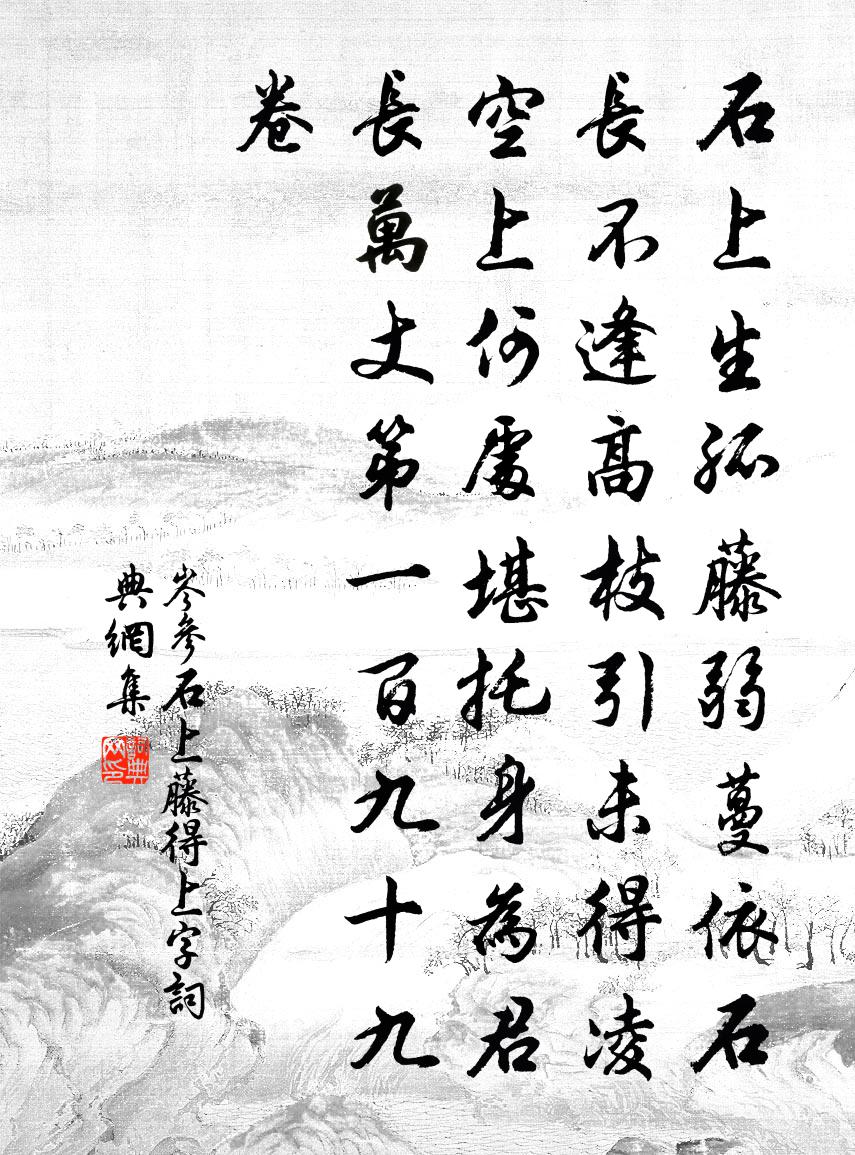 石上生孤藤弱蔓依石
長不逢高枝引未得凌
空上何處堪托身為君
長萬丈第一百九十九
卷
岑參石上藤得上字詞
典網集
詞典
网印